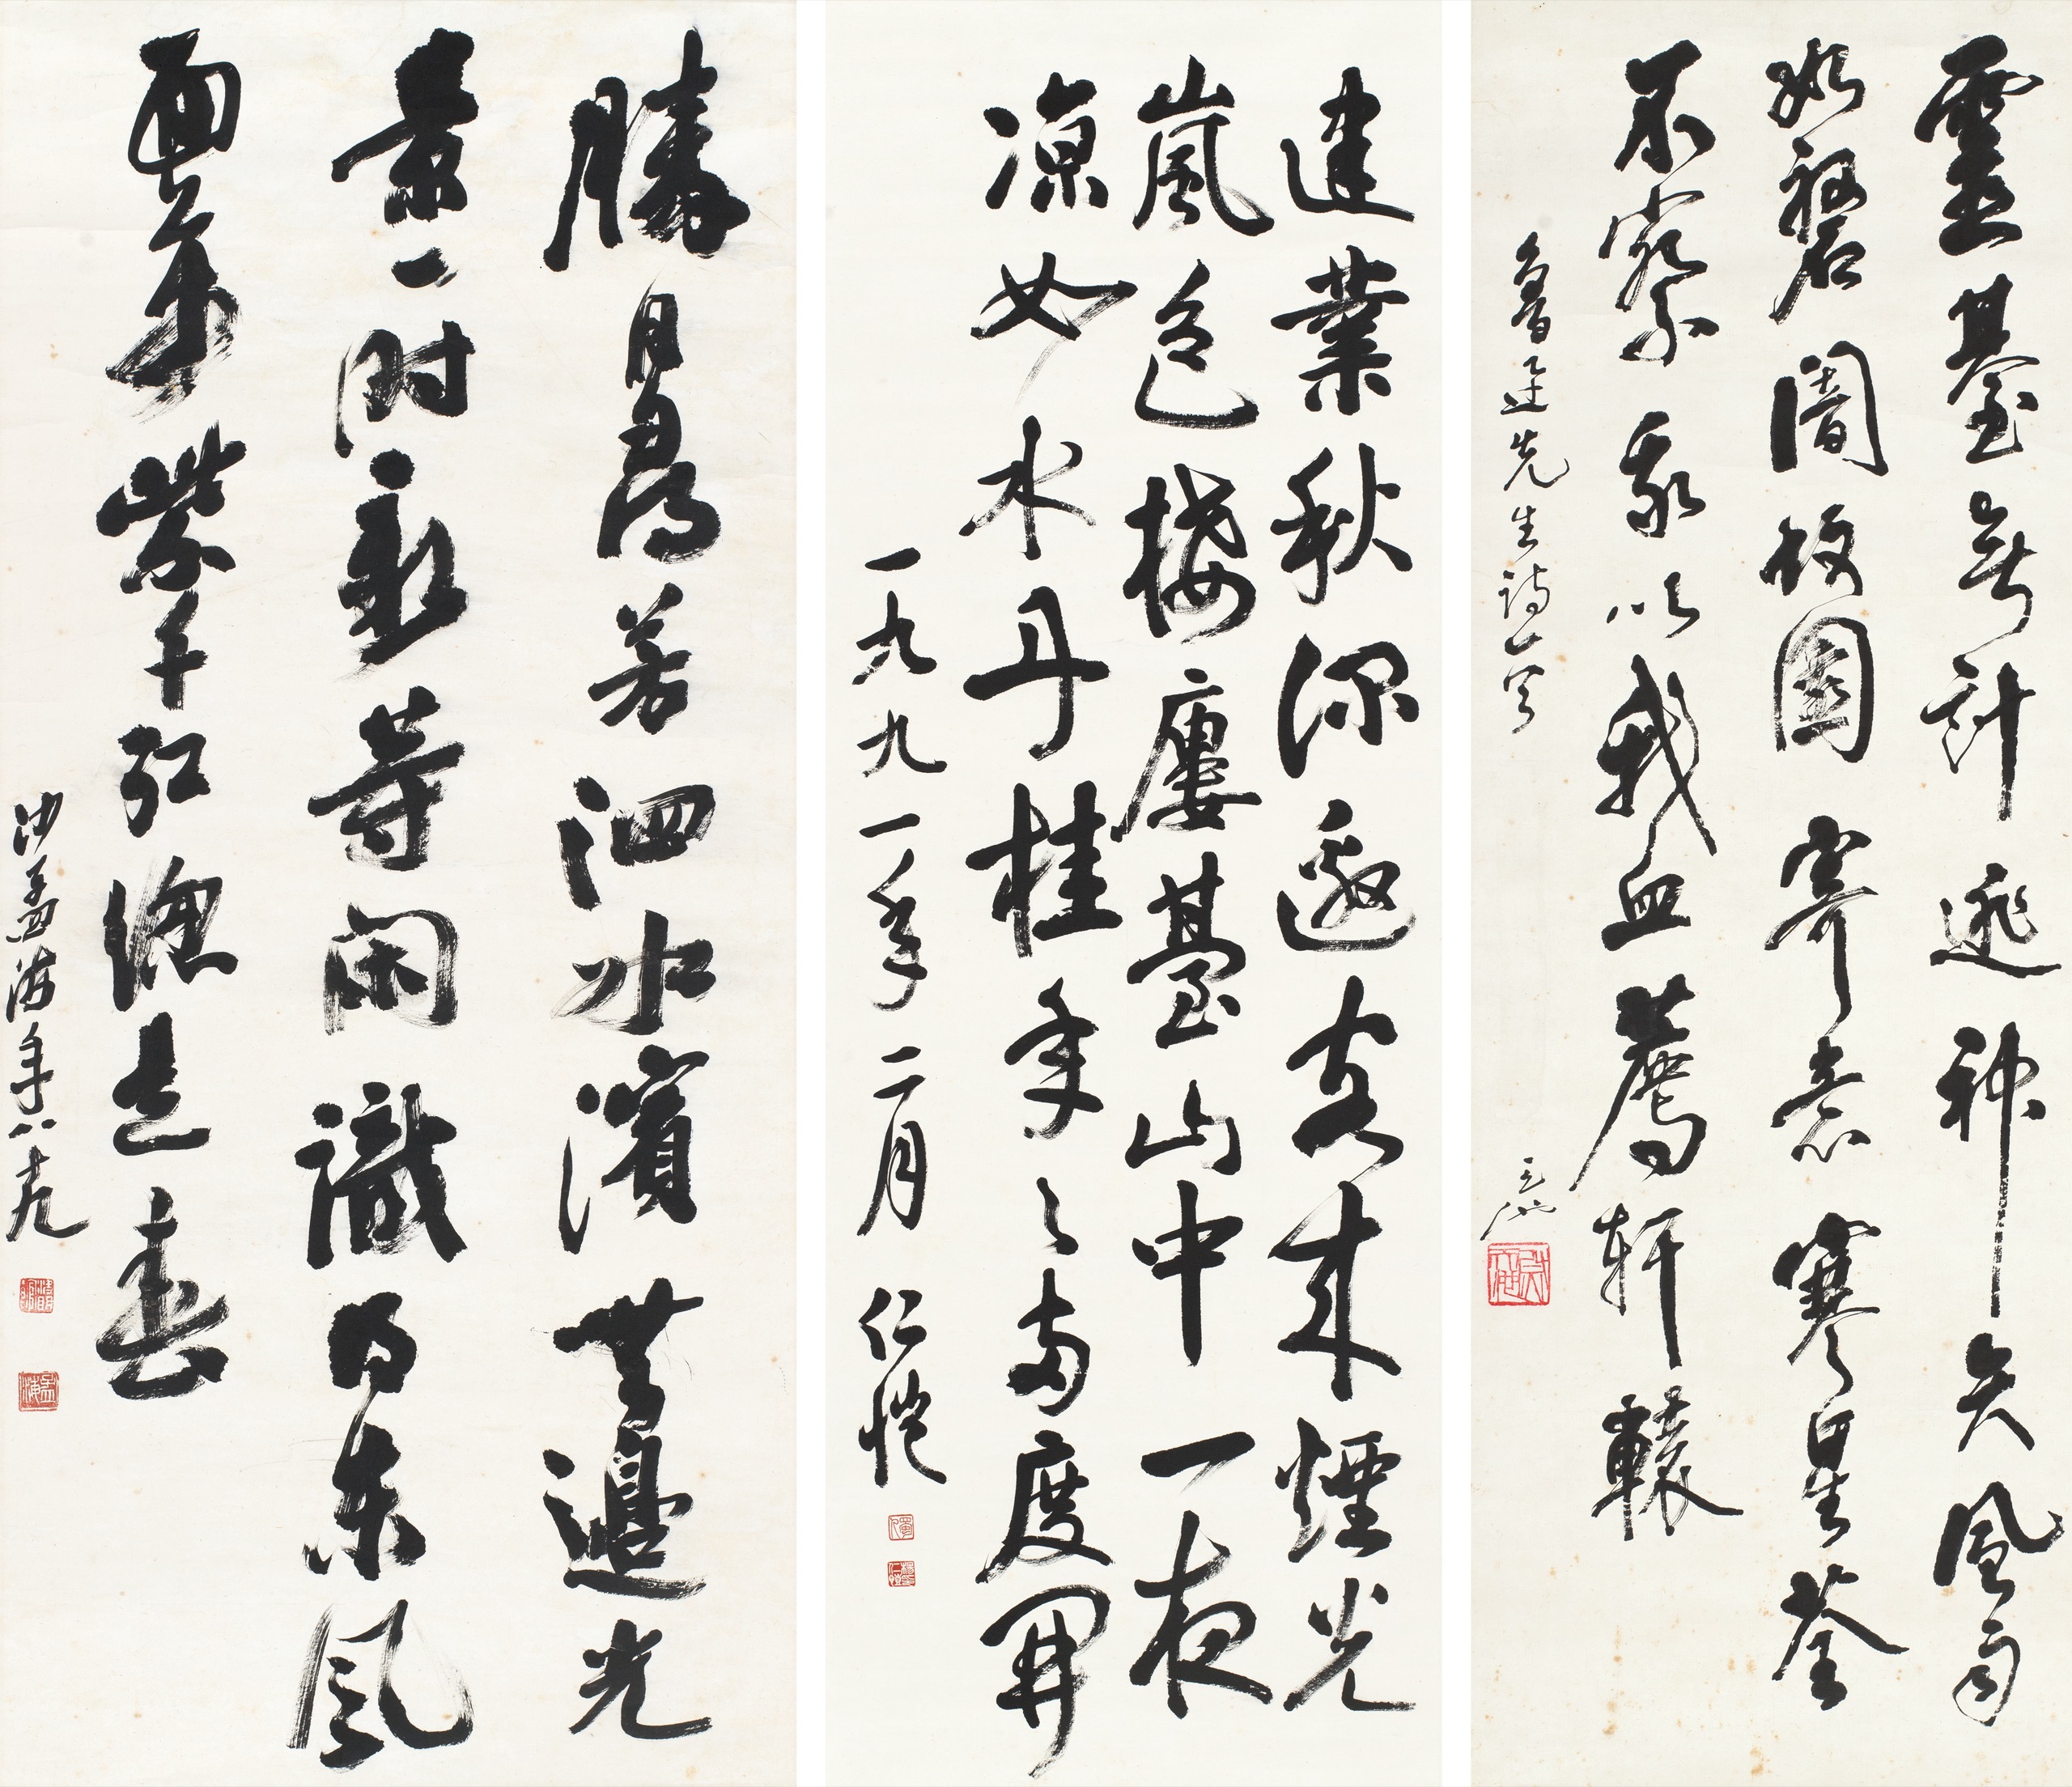 靈臺無計逃神矢風雨
如磐闇故園寄意寒星荃
不察我以我血薦軒轅
魯迅先生詩一首
建業秋深邀客來煙光
嵐色接廔臺山中一夜
凉如水丹桂年々兩度開
一九九一年二月 仁愷
勝日尋芳泗水濱無邊光
景一時新等閑識得東風
面萬紫千紅總是春
沙孟海年八十九